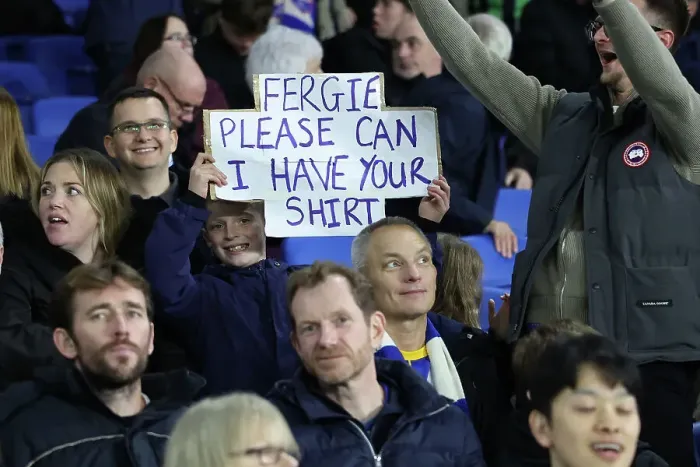 FERGIE
PLEASE CAN
I HAVE YOUR
SHIRT